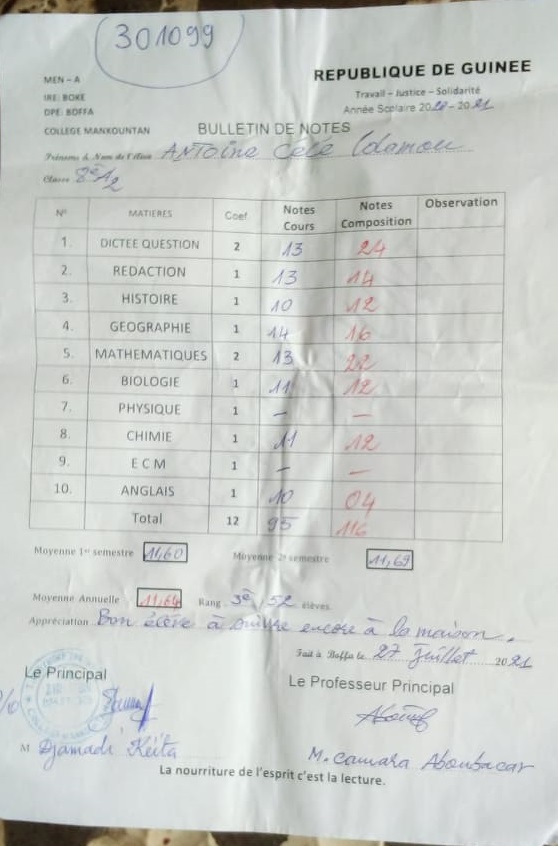 301099
MEN – A
REPUBLIQUE DE GUINEE
IRE: BOKE
Travail – Justice – Solidarité
DPE: BOFFA
Année Scolaire 2020 – 2021
COLLEGE MANKOUNTAN
BULLETIN DE NOTES
Prénoms & Nom de l'élève ANTOINE Cécé Kolamou
Classe 8è A2
N° MATIERES Coef Notes Cours Notes Composition Observation
1. DICTEE QUESTION 2 13 24
2. REDACTION 1 13 14
3. HISTOIRE 1 10 12
4. GEOGRAPHIE 1 14 16
5. MATHEMATIQUES 2 13 22
6. BIOLOGIE 1 11 12
7. PHYSIQUE 1 – –
8. CHIMIE 1 11 12
9. E C M 1 – –
10. ANGLAIS 1 10 04
Total 12 95 116
Moyenne 1er semestre 11,60 Moyenne 2e semestre 11,69
Moyenne Annuelle 11,64 Rang 3è / 52 élèves
Appréciation Bon élève à suivre encore à la maison.
Fait à Boffa le 27 Juillet 2021
Le Principal
Le Professeur Principal
P/O
M Djamadi Keita
M. Camara Aboubacar
La nourriture de l'esprit c'est la lecture.